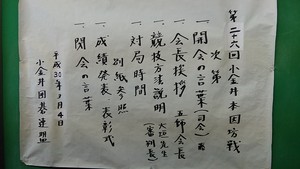 第二十六回小金井本因坊戦
次第
一 開会の言葉(司会)
一 会長挨拶 会長
一 競技方法説明 大垣先生
(審判長)
一 対局時間
別紙参照
一 成績発表 表彰式
一 閉会の言葉
平成30年 月4日
小金井囲碁連盟